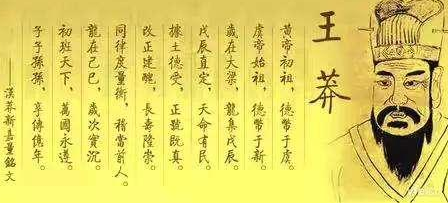 王莽
黃帝初祖，德幣于虞。
虞帝始祖，德幣于新。
歲在大梁，龍集戊辰。
戊辰直定，天命有民。
據土德受，正號既真。
改正建醜，長壽隆崇。
同律度量衡，稽當前人。
龍在己巳，歲次實沉。
初班天下，萬國永遵。
子子孫孫，享傳億年。
——漢莽新嘉量銘文